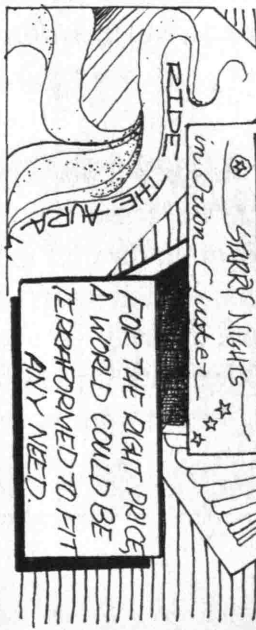 RIDE THE AURA
STARRY NIGHTS
in Orion Cluster
FOR THE RIGHT PRICE,
A WORLD COULD BE
TERRAFORMED TO FIT
ANY NEED.